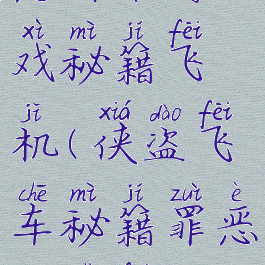 xì mì jí fēi
戏秘籍飞
jī xiá dào fēi
机(侠盗飞
chē mì jí zuì è
车秘籍罪恶